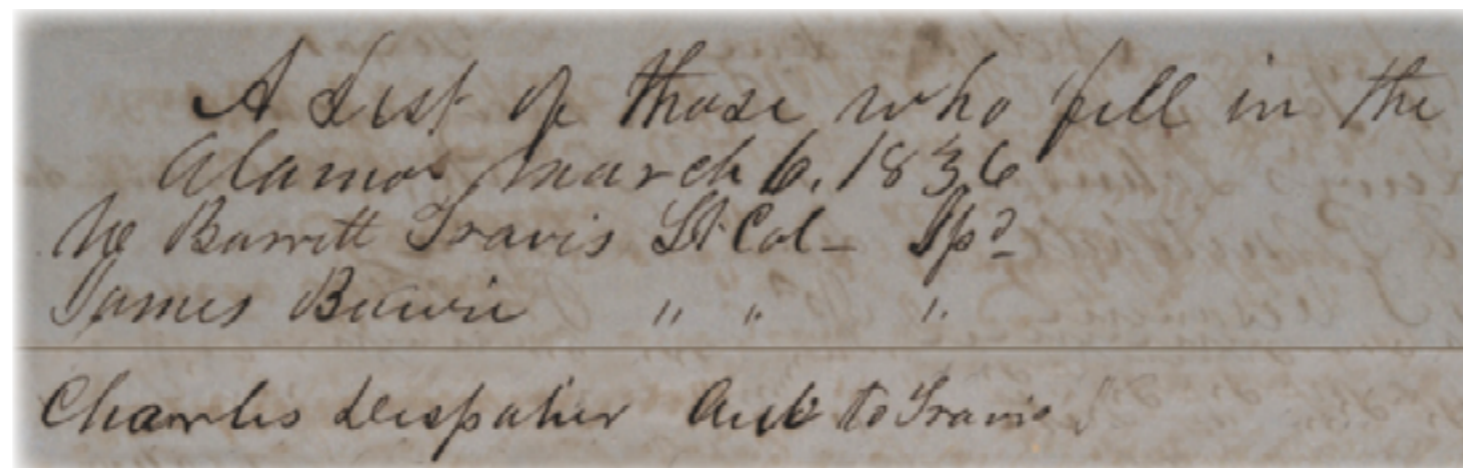 A List of those who fell in the
Alamo March 6, 1836
W Barrett Travis Lt Col –
James Bowie " " "
Charles Despalier Aid to Travis